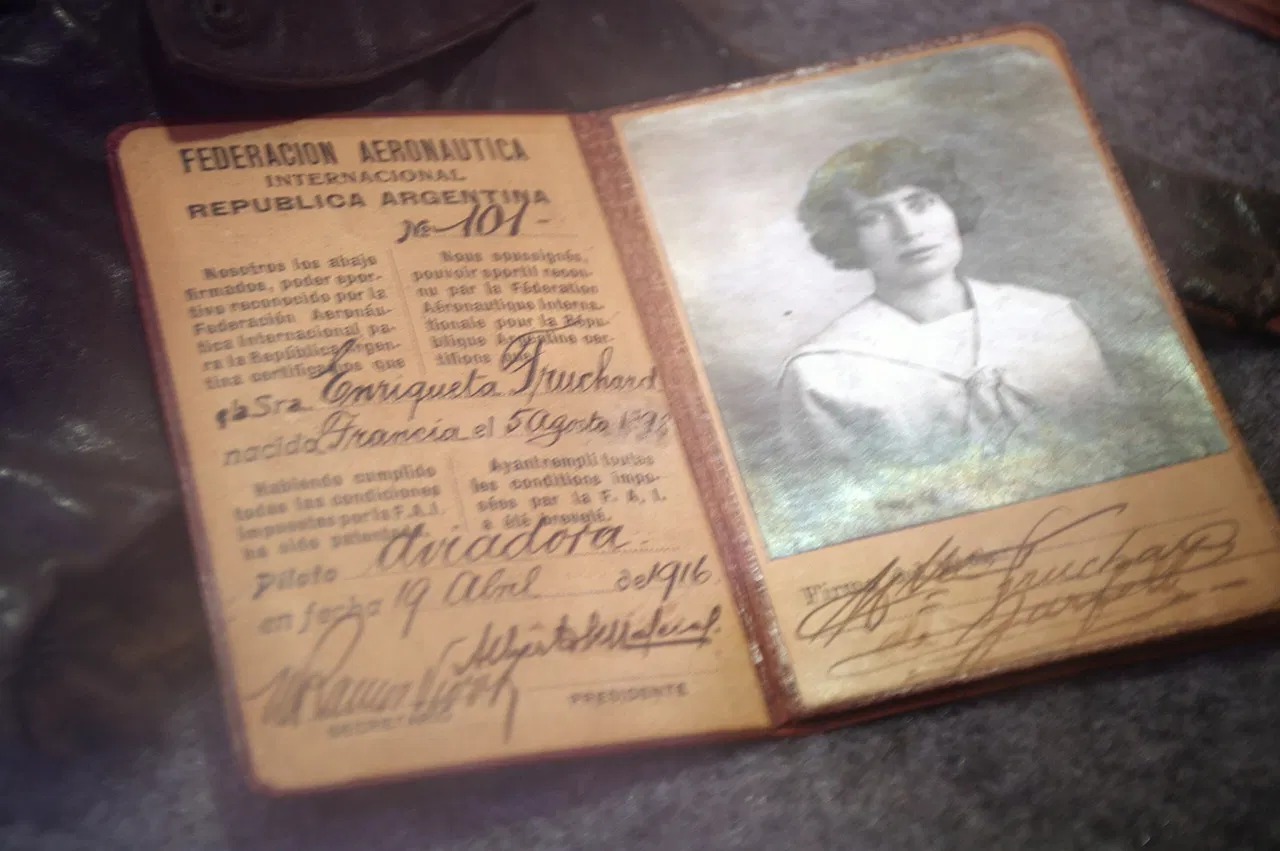 FEDERACION AERONAUTICA
INTERNACIONAL
REPUBLICA ARGENTINA
No 101-
Nosotros los abajo
firmados, poder spor-
tivo reconocido por la
Federación Aeronáu-
tica Internacional pa-
ra la República Argen-
tina certificamos que
Nous soussignés,
pouvoir sportif recon-
nu par la Féderation
Aéronautique Interna-
tionale pour la Répu-
blique Argentine cer-
tifions que
la Sra. Enriqueta Truchard
nacido Francia el 5 Agosto
Habiendo cumplido
todas las condiciones
impuestas por la F. A. I.
ha sido patentado
Ayant rempli toutes
les conditions impo-
sées par la F. A. I.
a été breveté.
Piloto aviadora.-
en fecha 19 Abril de 1916
SECRETARIO
PRESIDENTE
Truchard
de